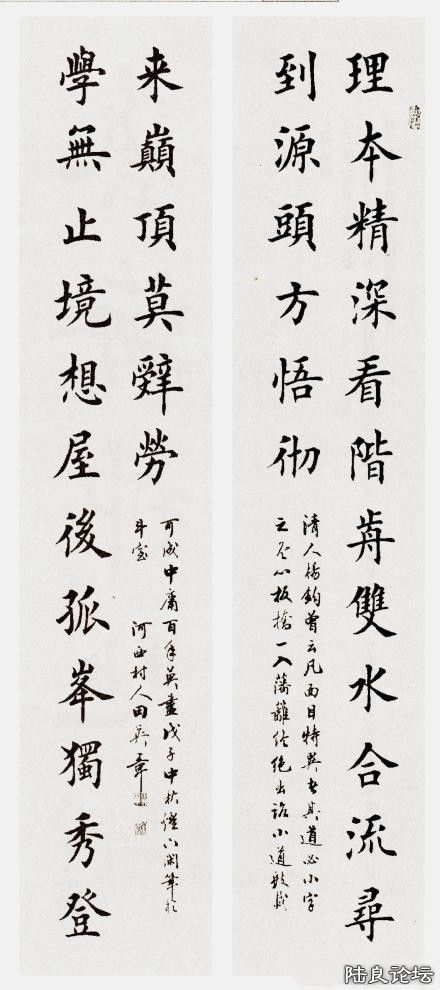 理本精深看階歬雙水合流尋
到源頭方悟彻
清人楊鈞曾云凡面目特異者其道必小字
之一入藩籬絕出路小道
學無止境想屋後孤峯獨秀登
来巔頂莫辭勞
可成中庸百年莫盡戊子中秋
斗室 河西村人田英章
陆良论坛